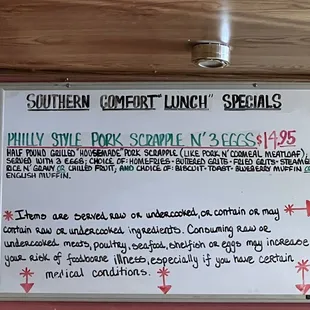 SOUTHERN COMFORT "LUNCH" SPECIALS
PHILLY STYLE PORK SCRAPPLE N' 3 EGGS $14.95
HALF POUND GRILLED "HOUSEMADE" PORK SCRAPPLE (LIKE PORK N' CORNMEAL MEATLOAF);
SERVED WITH 3 EGGS; CHOICE OF: HOMEFRIES - BUTTERED GRITS - FRIED GRITS - STEAMED
RICE N' GRAVY OR CHILLED FRUIT; AND CHOICE OF: BISCUIT - TOAST - BLUEBERRY MUFFIN OR
ENGLISH MUFFIN.
* Items are served raw or undercooked, or contain or may
contain raw or undercooked ingredients. Consuming raw or
undercooked meats, poultry, seafood, shellfish or eggs may increase
your risk of foodborne illness, especially if you have certain
medical conditions.